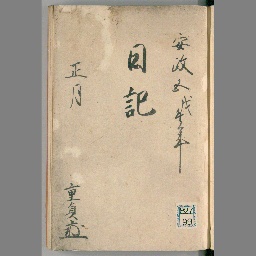 安政五戊午年
日記
正月
重真